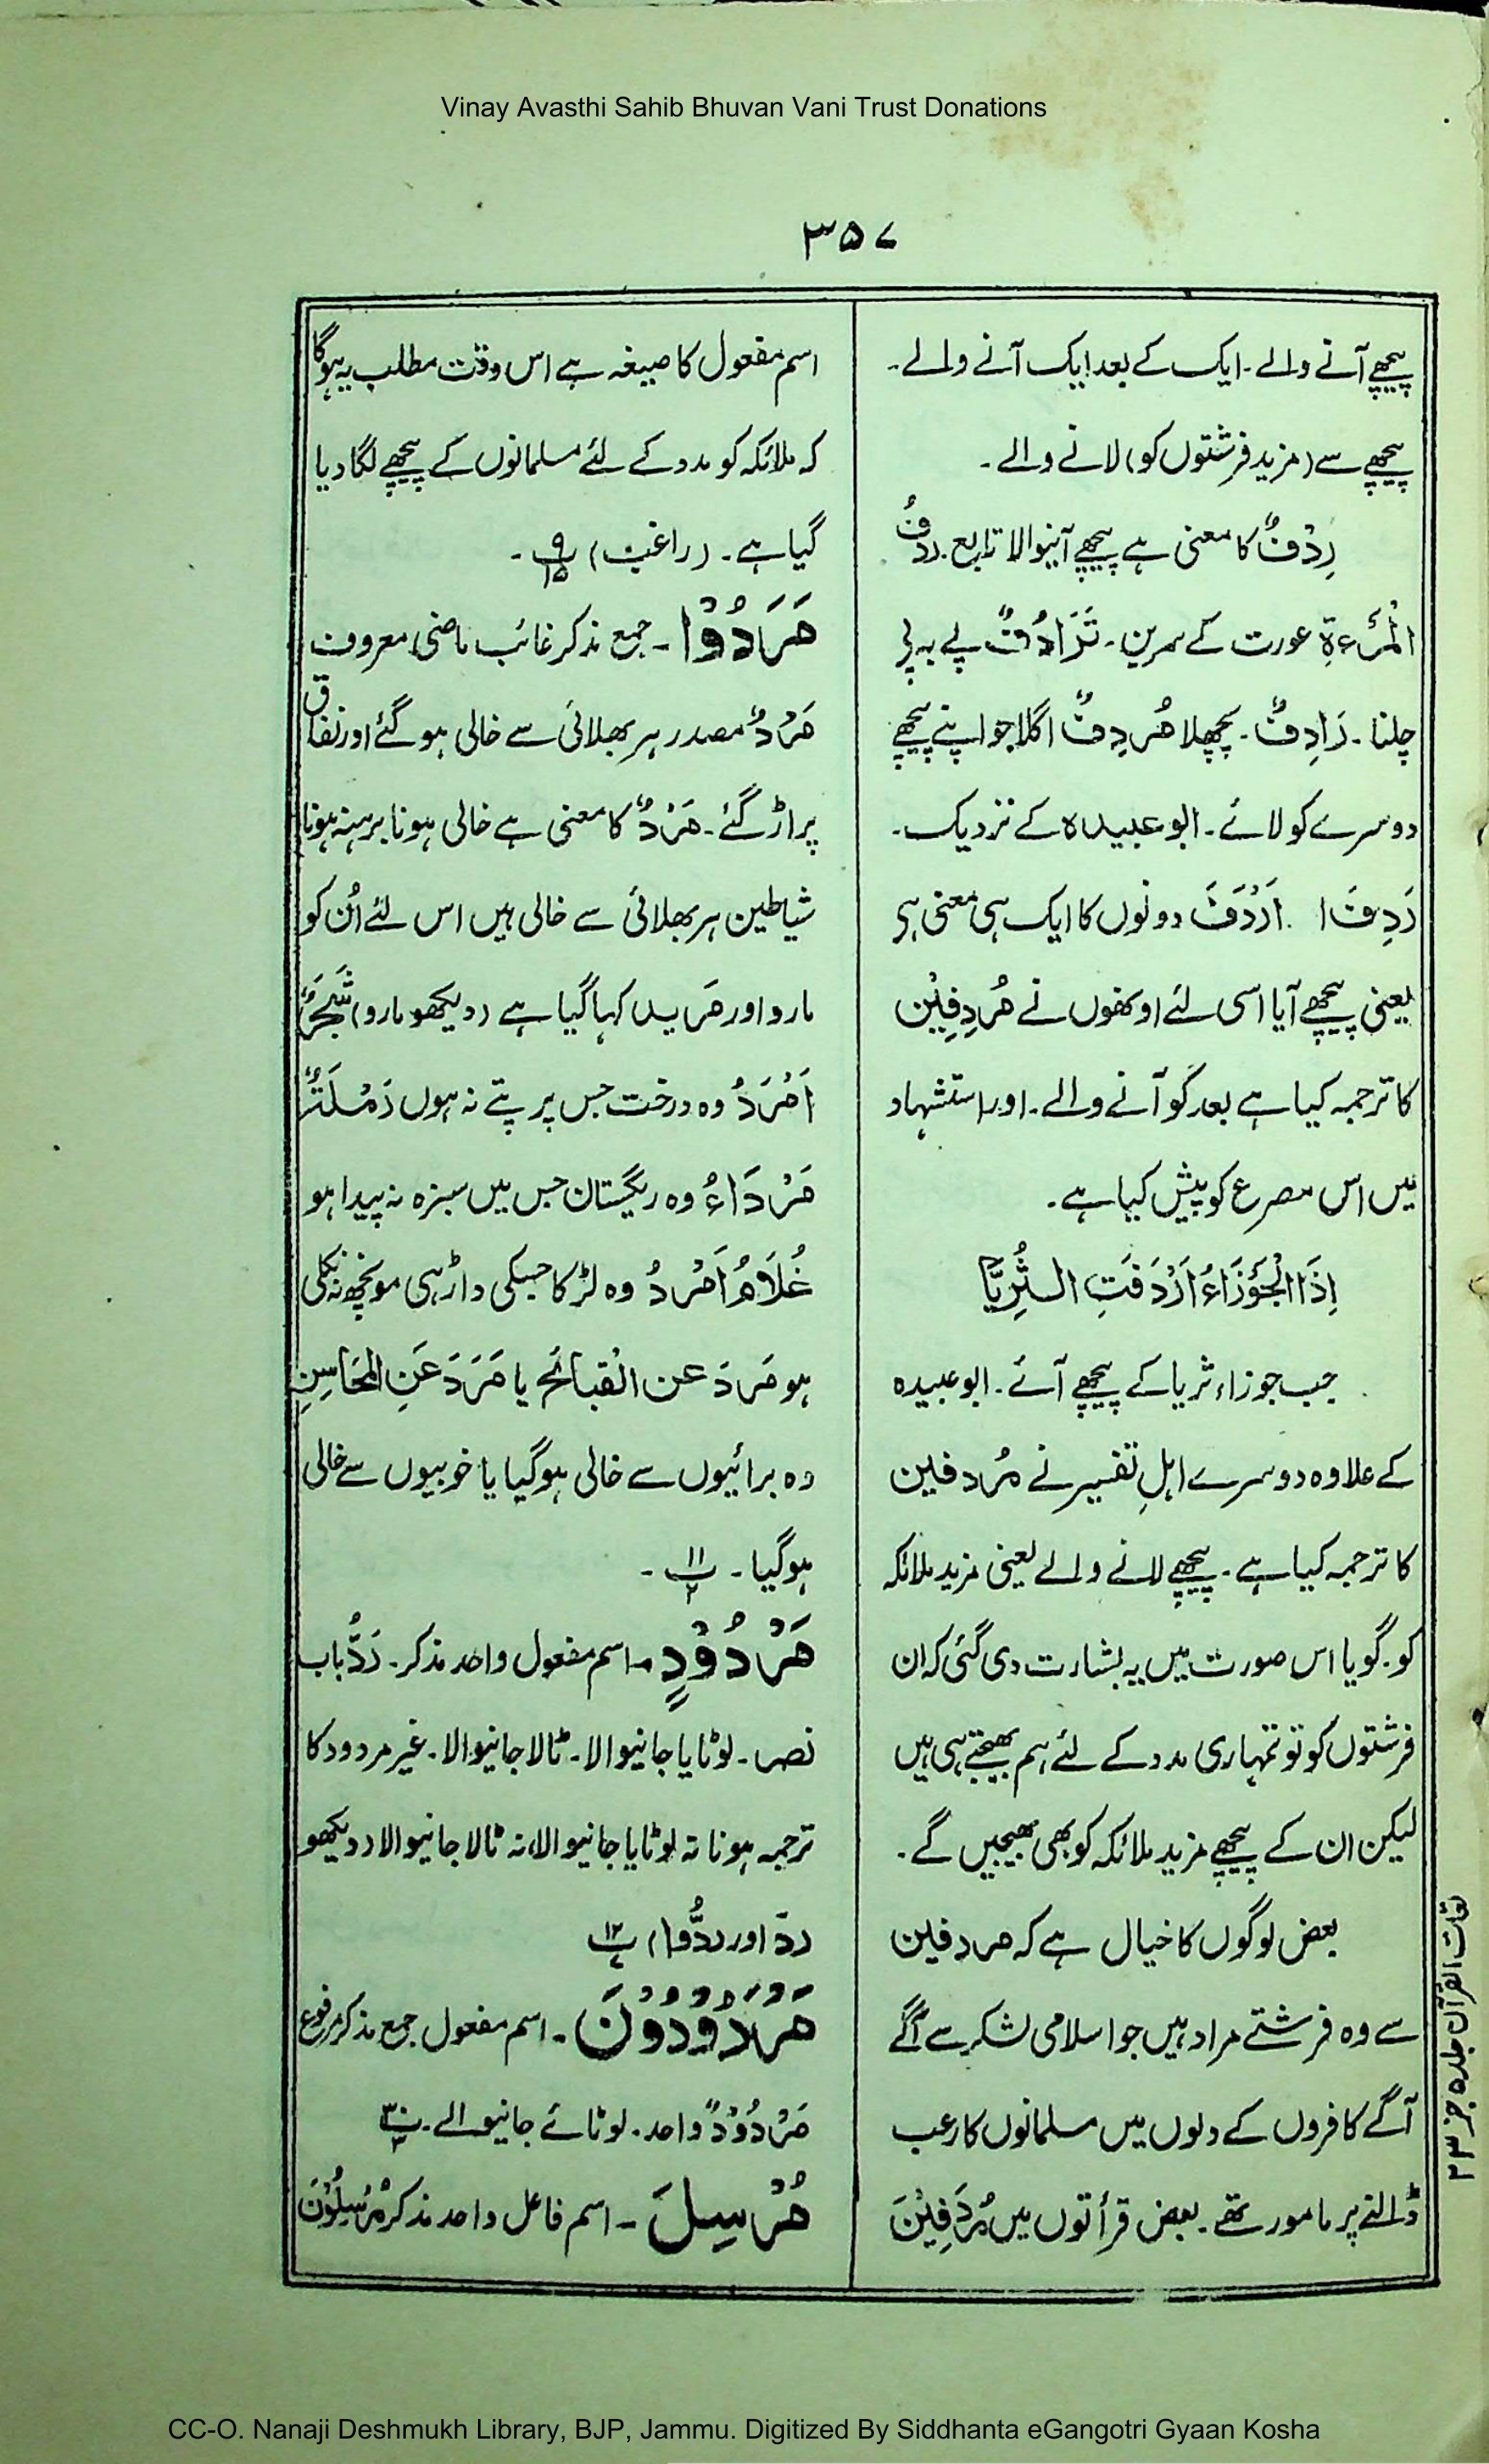 Vinay Avasthi Sahib Bhuvan Vani Trust Donations
۳۵۷
پیچھے آنے والے۔ ایک کے بعد ایک آنے والے۔
پیچھے سے (مزید فرشتوں کو) لانے والے۔
رِدْفٌ کا معنی ہے پیچھے آنیوالا تابع۔ رِدْفُ
الْمَرْءَةِ عورت کے سرین۔ تَرَادُفٌ پے بہ پے
چلنا۔ رَادِفٌ۔ پچھلا مُردِفٌ اگلا جو اپنے پیچھے
دوسرے کو لائے۔ ابو عبیدہ کے نزدیک۔
رَدِفَ ا۔ اَرْدَفَ دونوں کا ایک ہی معنی ہی
یعنی پیچھے آیا اسی لئے اوکھوں نے مُردِفِیْن
کا ترجمہ کیا ہے بعد کو آنے والے۔ اور استشہاد
میں اس مصرع کو پیش کیا ہے۔
اِذَا الْجَوْزَاءُ اَرْدَفَتِ الثُّرِیَّا
جب جوزاء ثریا کے پیچھے آئے۔ ابو عبیدہ
کے علاوہ دوسرے اہلِ تفسیر نے مُردفین
کا ترجمہ کیا ہے۔ پیچھے لانے والے یعنی مزید ملائکہ
کو۔ گویا اس صورت میں یہ بشارت دی گئی کہ ان
فرشتوں کو تو تمہاری مدد کے لئے ہم بھیجتے ہی ہیں
لیکن ان کے پیچھے مزید ملائکہ کو بھی بھیجیں گے۔
بعض لوگوں کا خیال ہے کہ مردفین
سے وہ فرشتے مراد ہیں جو اسلامی لشکر سے آگے
آگے کافروں کے دلوں میں مسلمانوں کا رعب
ڈالنے پر مامور تھے۔ بعض قرأتوں میں مُردَفِیْنَ
اسم مفعول کا صیغہ ہے اس وقت مطلب یہ ہوگا
کہ ملائکہ کو مدد کے لئے مسلمانوں کے پیچھے لگا دیا
گیا ہے۔ (راغب) پ ۹/۱۵۔
مَرَدُوْا۔ جمع مذکر غائب ماضی معروف
مَرْدٌ مصدر ہر بھلائی سے خالی ہو گئے اور نفاق
پر اڑ گئے۔ مَرْدٌ کا معنی ہے خالی ہونا برہنہ ہونا
شیاطین ہر بھلائی سے خالی ہیں اس لئے اُن کو
مارد اور مَرید کہا گیا ہے (دیکھو مارد) شَجَرٌ
اَمْرَدُ وہ درخت جس پر پتے نہ ہوں رَمْلَۃٌ
مَرْدَاءُ وہ ریگستان جس میں سبزہ نہ پیدا ہو
غُلَامٌ اَمْرَدُ وہ لڑکا جسکی داڑھی مونچھ نہ نکلی
ہو مَرَدَ عن الْقبائحِ یا مَرَدَ عَنِ الْمَحَاسِنِ
وہ برائیوں سے خالی ہوگیا یا خوبیوں سے خالی
ہوگیا۔ پ ۱۱/۲۔
مَرْدُوْدٍ۔ اسم مفعول واحد مذکر۔ رَدٌّ باب
نصر۔ لوٹایا جانیوالا۔ ٹالا جانیوالا۔ غیر مردود کا
ترجمہ ہوا نہ لوٹایا جانیوالا، نہ ٹالا جانیوالا (دیکھو
ردّ اور ردُّوا) پ ۱۲
مَرْدُوْدُوْنَ۔ اسم مفعول جمع مذکر مرفوع
مَرْدُوْدٌ واحد۔ لوٹائے جانیوالے۔ پ ۳۰/۳
مُرْسِلَ۔ اسم فاعل واحد مذکر مُرْسِلُوْنَ
لغات القرآن جلد ۵ جز ۲۳
CC-O. Nanaji Deshmukh Library, BJP, Jammu. Digitized By Siddhanta eGangotri Gyaan Kosha